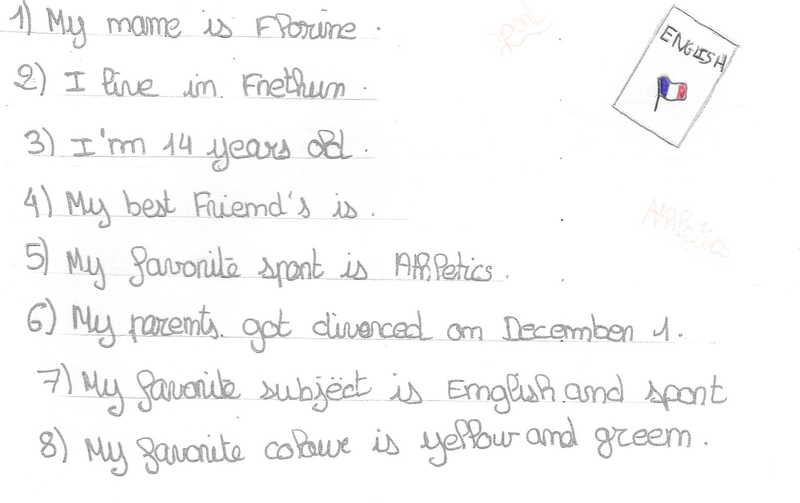 1) My name is Florine.
ENGLISH
2) I live in Frethun.
3) I'm 14 years old.
4) My best Friend's is.
5) My favorite sport is Athletics.
6) My parents. got divorced on December 1.
7) My favorite subject is English.and sport
8) My favorite coloure is yellow and green.